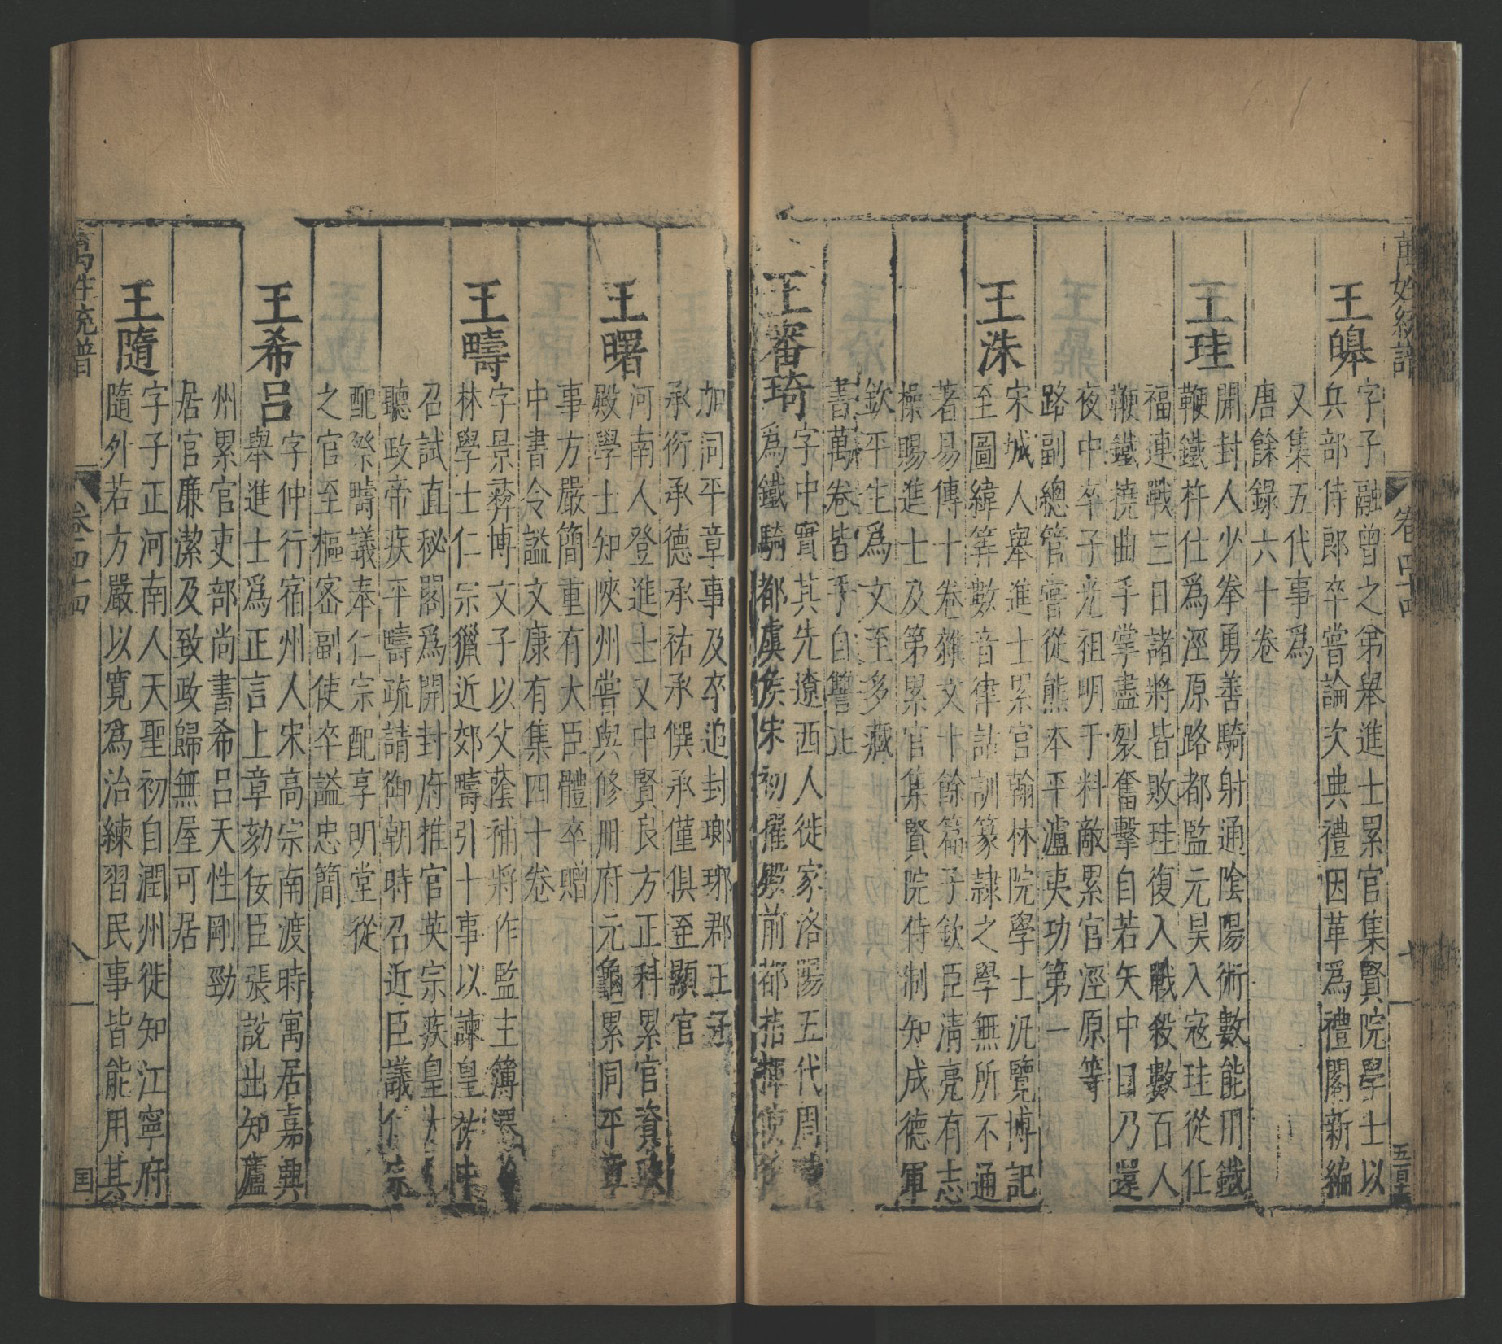 萬姓統譜
卷四十四
王皞
字子融曾之弟舉進士累官集賢院學士以
兵部侍郎卒嘗論次典禮因革爲禮閣新編
又集五代事爲
唐餘錄六十卷
王珪
開封人少拳勇善騎射通陰陽術數能用鐵
鞭鐵杵仕爲涇原路都監元昊入寇珪從任
福連戰三日諸將皆敗珪復入戰殺數百人
鞭鐵撓曲手掌盡裂奮擊自若矢中目乃還
夜中卒子光祖明于料敵累官涇原等
路副總管嘗從熊本平瀘夷功第一
王洙
宋城人舉進士累官翰林院學士汎覽博記
至圖緯筭數音律詁訓篆隷之學無所不通
著易傳十卷雜文十餘篇子欽臣清亮有志
操賜進士及第累官集賢院待制知成德軍
欽平生爲文至多藏
書萬卷皆手自讐正
王審琦
字中寶其先遼西人徙家洛陽五代周時
爲鐵騎都虞侯宋初擢殿前都指揮使
加同平章事及卒追封瑯琊郡王子
承衍承德承祐承僎承僅俱至顯官
王曙
河南人登進士又中賢良方正科累官資政
殿學士知陝州嘗與修冊府元龜累同平章
事方嚴簡重有大臣體卒贈
中書令謚文康有集四十卷
王疇
字景彝博文子以父蔭補將作監主簿遷
林學士仁宗獵近郊疇引十事以諫皇祐中
召試直秘閣爲開封府推官英宗疾皇太
聽政帝疾平疇疏請御朝時召近臣議仁宗
配祭疇議奉仁宗配享明堂從
之官至樞密副使卒謚忠簡
王希呂
字仲行宿州人宋高宗南渡時寓居嘉興
舉進士爲正言上章劾佞臣張說出知廬
州累官吏部尚書希呂天性剛勁
居官廉潔及致政歸無屋可居
王隨
字子正河南人天聖初自潤州徙知江寧府
隨外若方嚴以寬爲治練習民事皆能用其
萬姓統譜
卷四十四